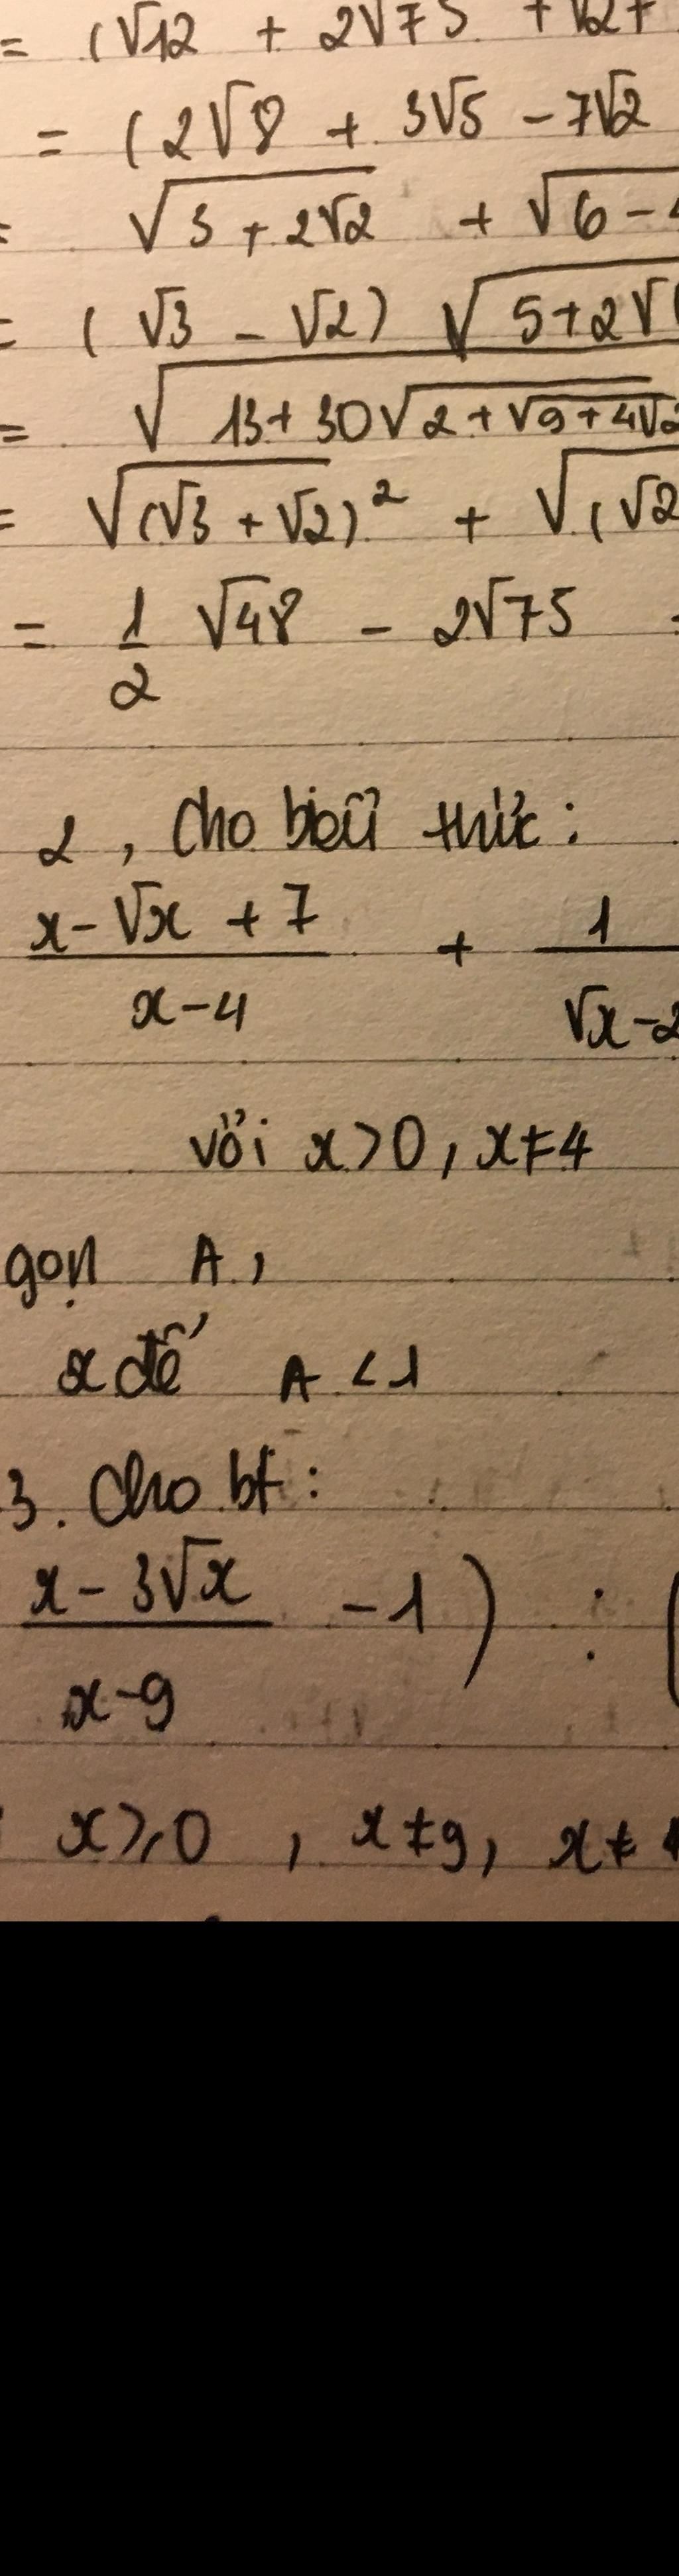 = (√12 + 2√75 + √27
= (2√8 + 3√5 - 7√2
= √(3 + 2√2) + √(6 -
= (√3 - √2) √(5 + 2√
= √(13 + 30√(2 + √(9 + 4√2
= √(√3 + √2)² + √(√2
= 1/2 √48 - 2√75
2, Cho biểu thức:
(x - √x + 7)/(x - 4) + 1/(√x - 2
với x > 0, x ≠ 4
gọn A,
x để A < 1
3. Cho bt:
(x - 3√x)/(x - 9) - 1) : (
x ≥ 0, x ≠ 9, x ≠